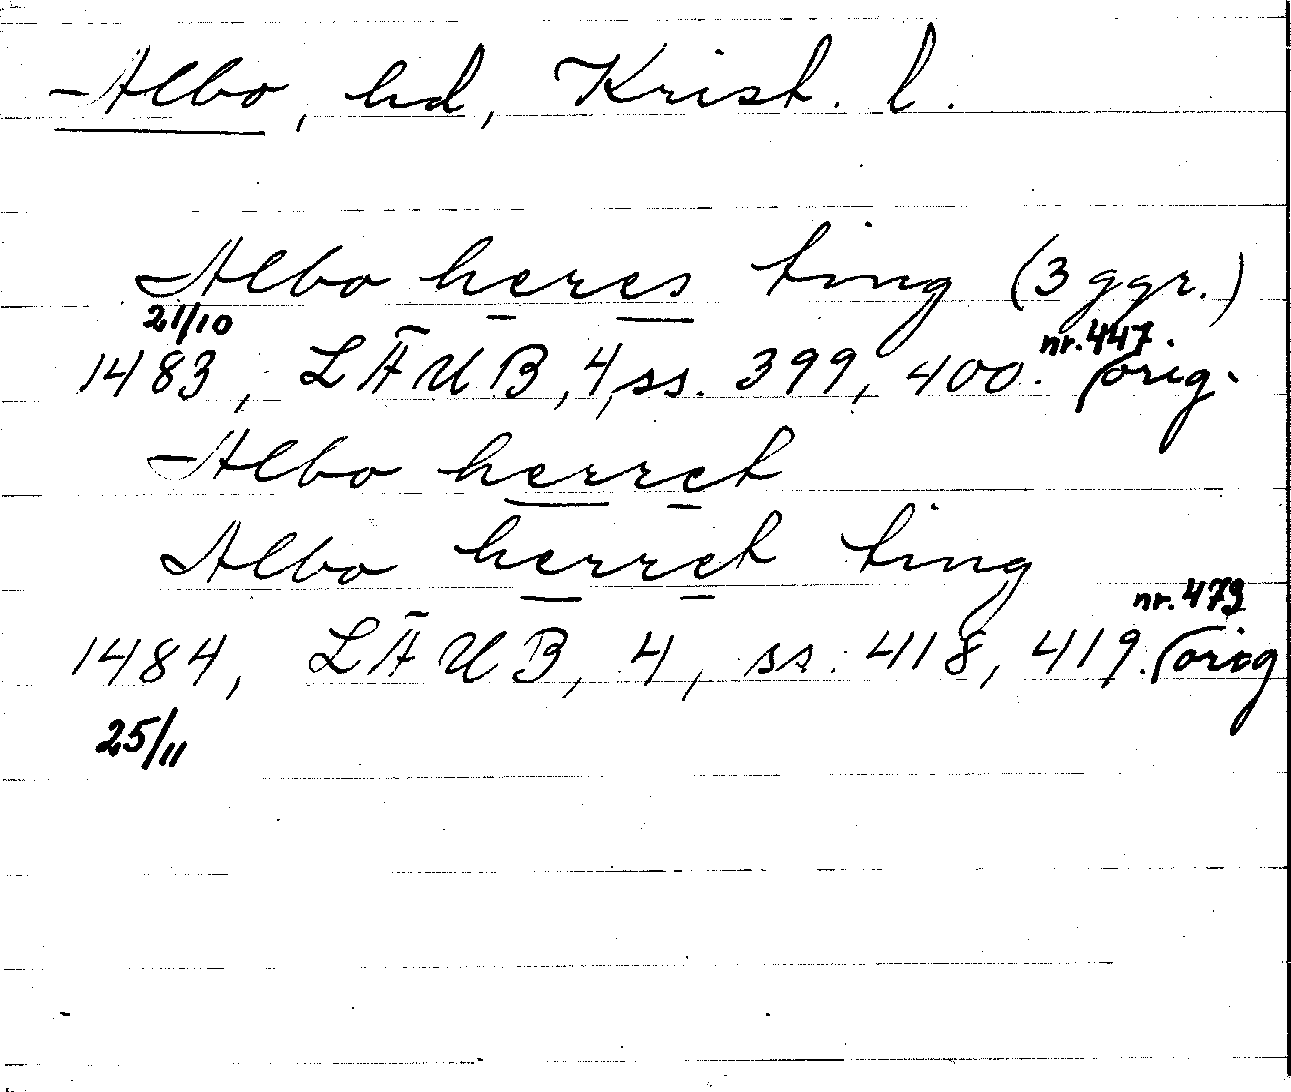 Albo, hd, Krist. l.
Albo heres ting (3 ggr.)
21/10
1483, LÄUB, 4, ss. 399, 400. nr. 447. orig.
Albo herret
Albo herret ting
nr. 479
1484, LÄUB, 4, ss. 418, 419. orig
25/11